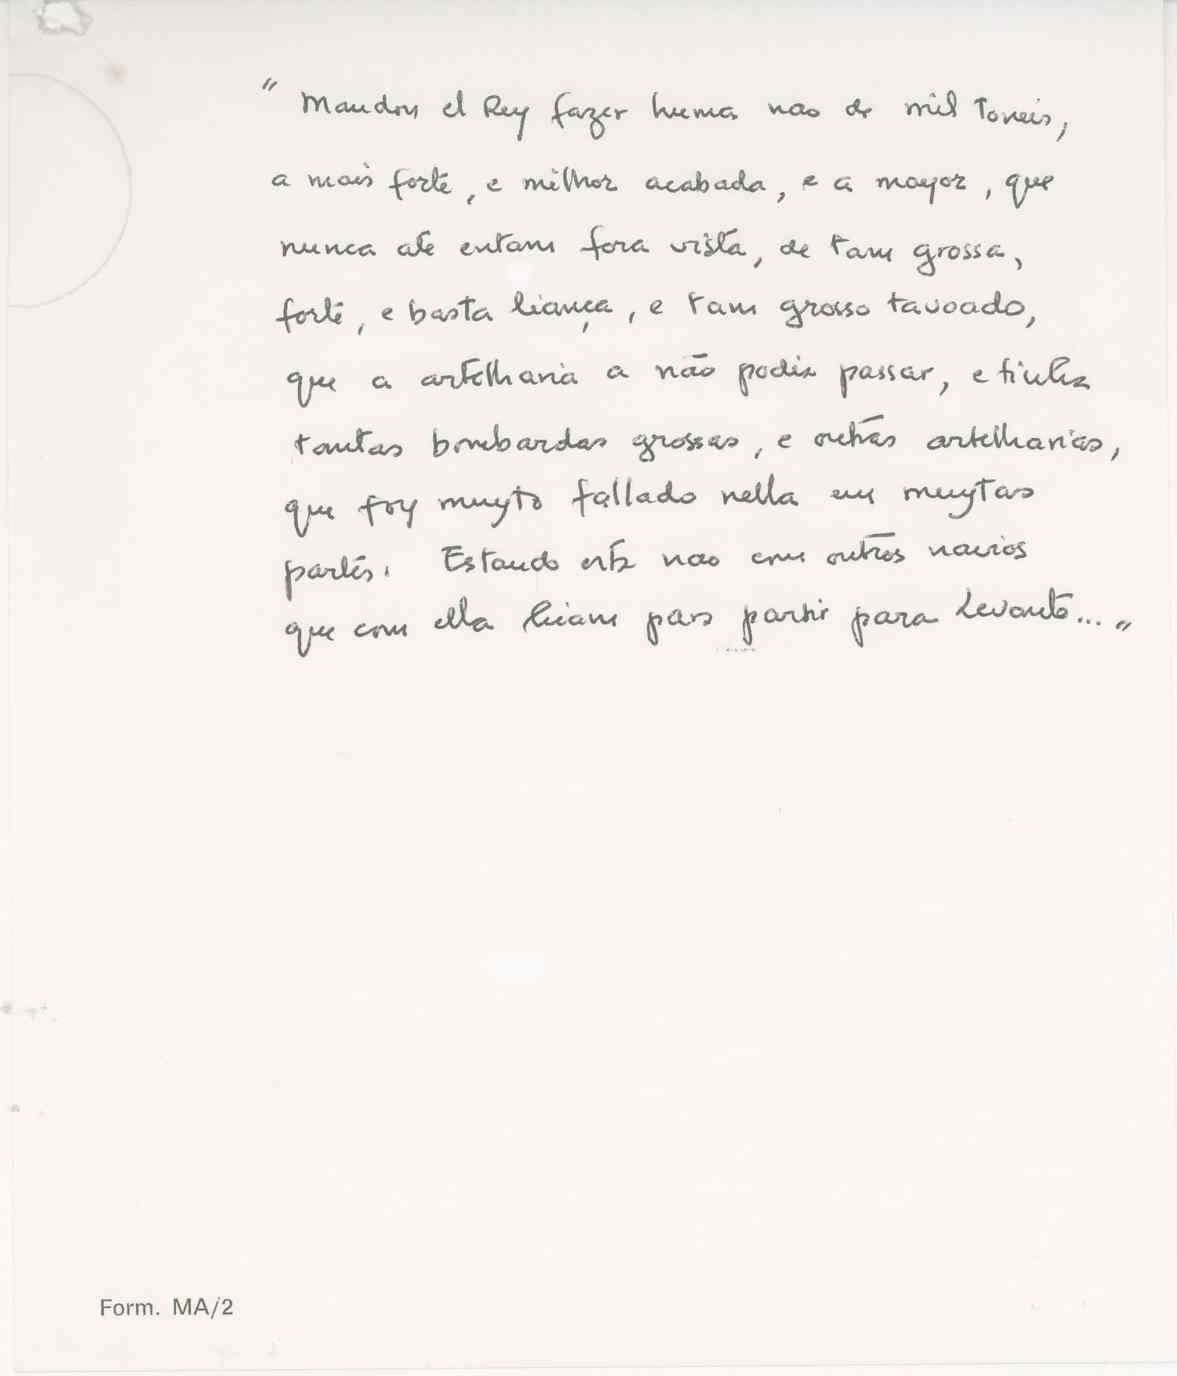 " Mandou el Rey fazer huma nao de mil toneis,
a mais forte, e milhor acabada, e a mayor, que
nunca ate entam fora vista, de tam grossa,
forte, e basta liança, e tam grosso tavoado,
que a artelharia a não podia passar, e tinha
tantas bombardas grossas, e outras artelharias,
que foy muyto fallado nella em muytas
partes. Estando esta nao com outros navios
que com ella hiam para partir para Levante... "
Form. MA/2